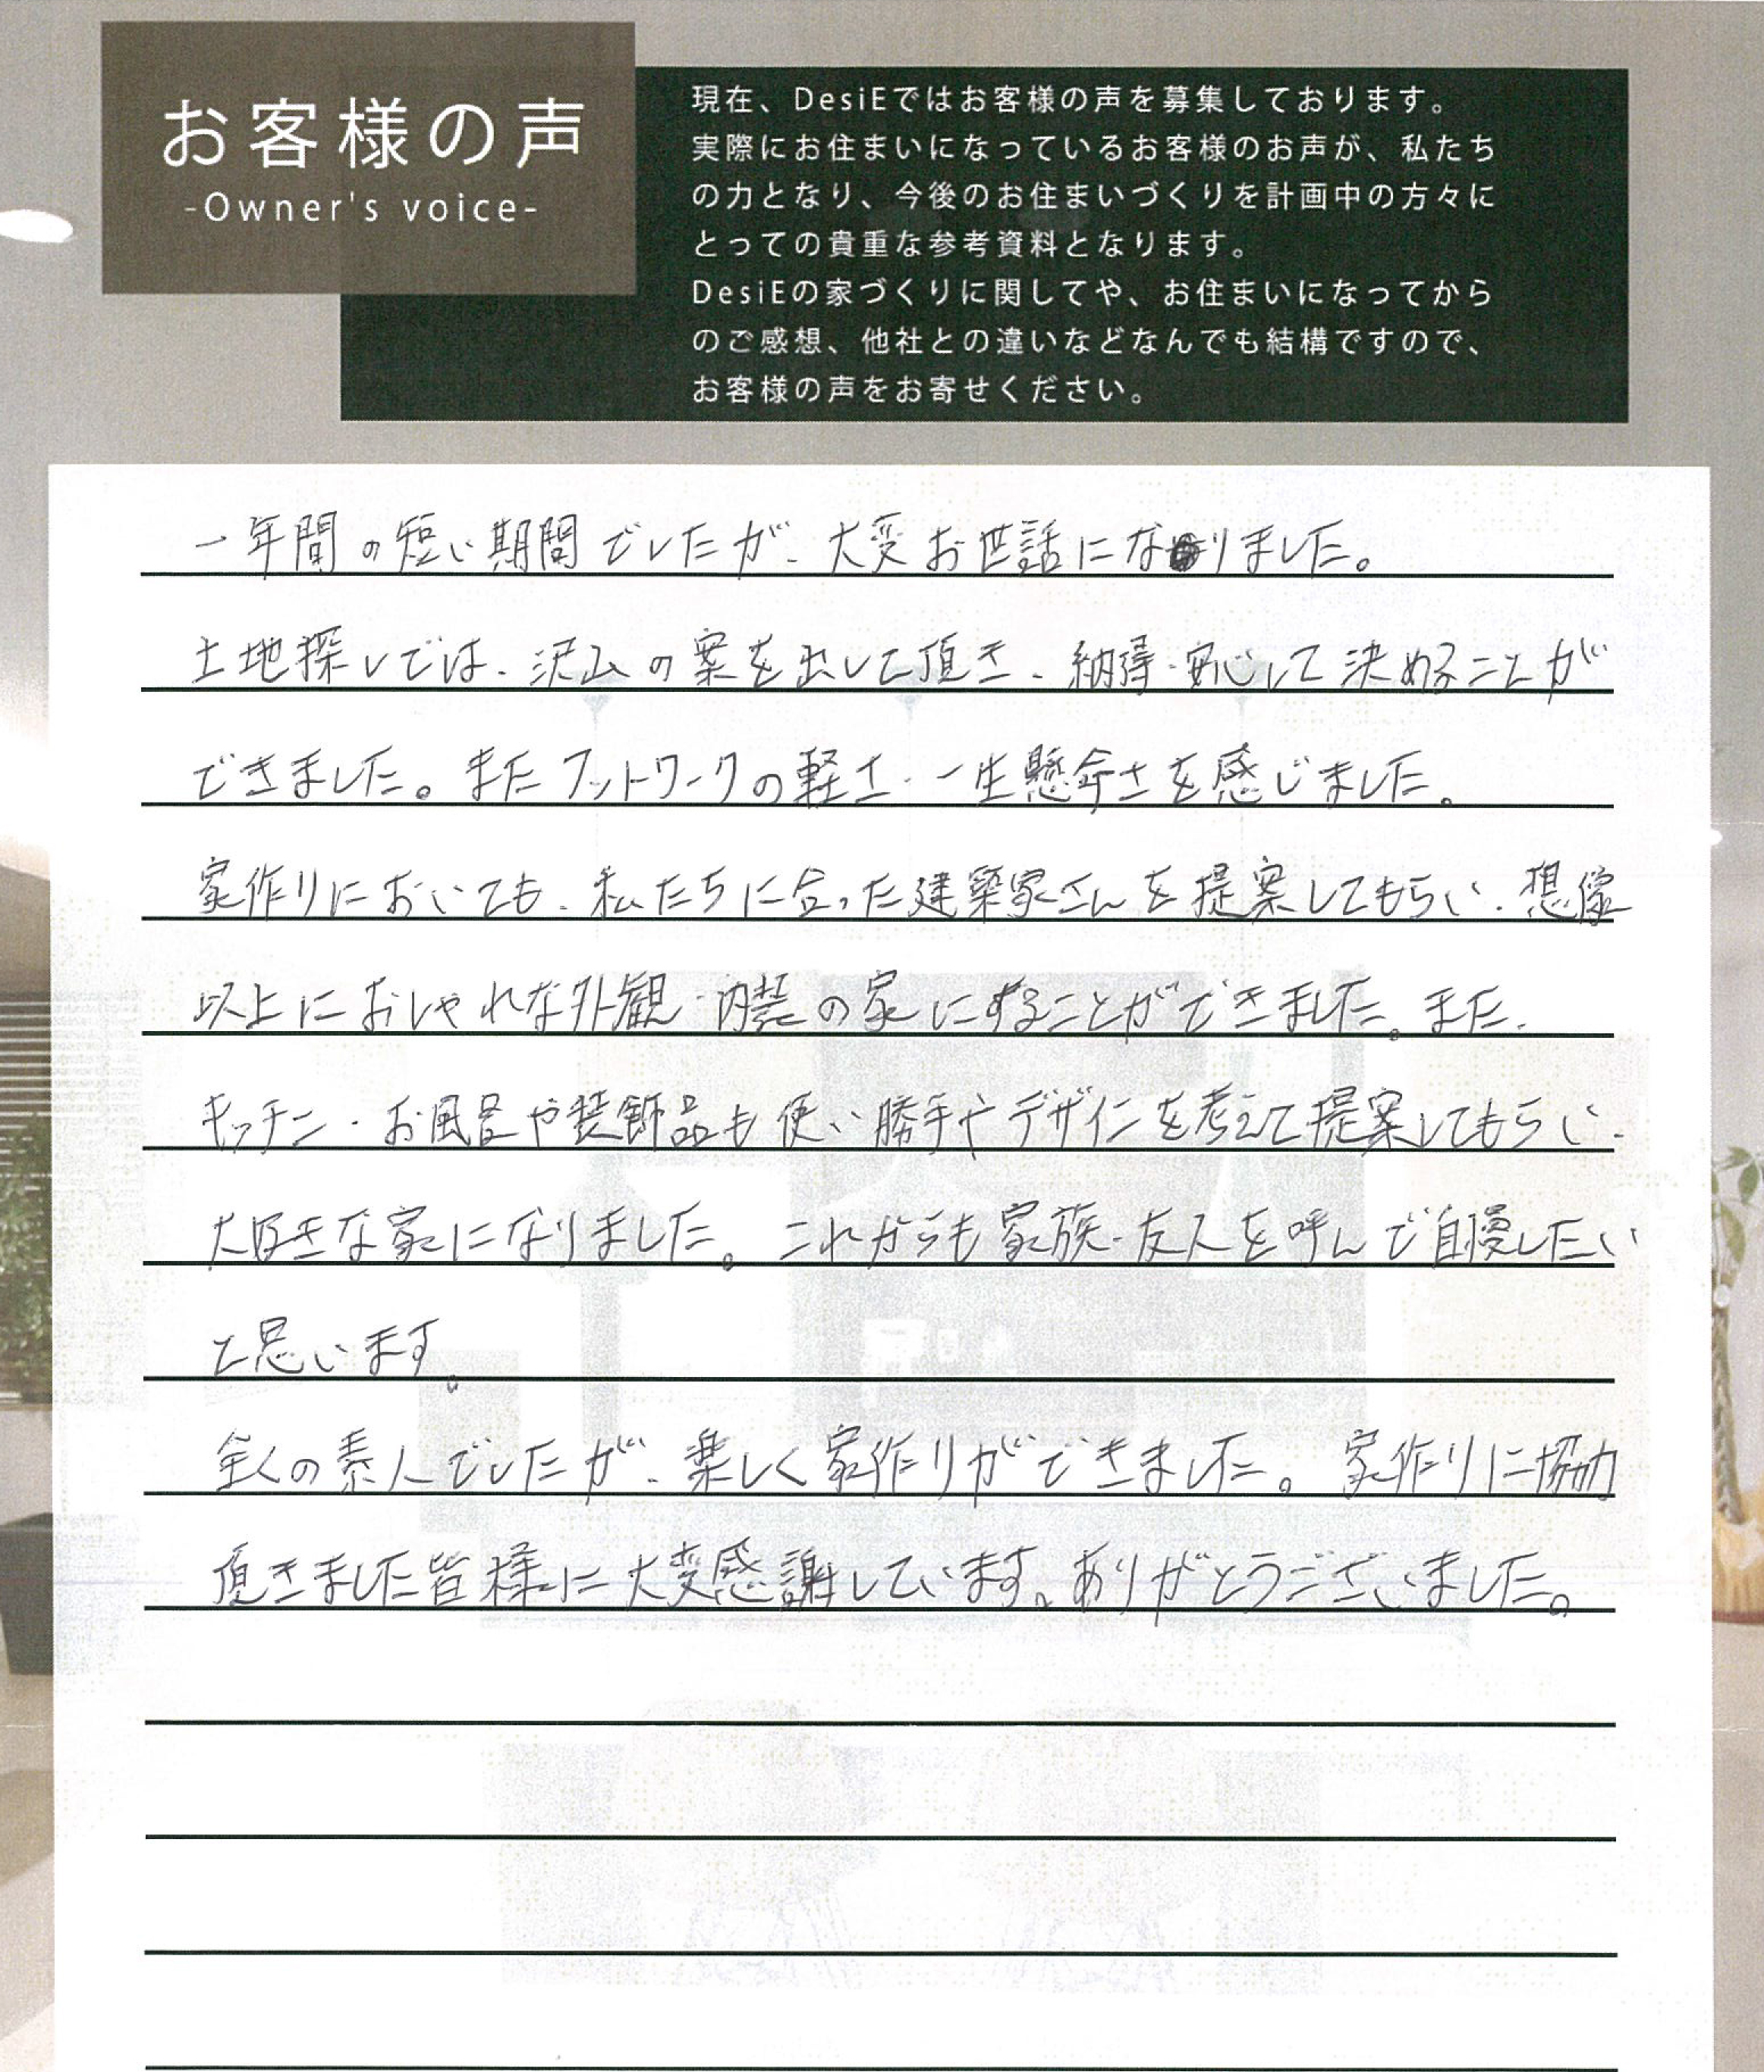 お客様の声
-Owner's voice-
現在、DesiEではお客様の声を募集しております。
実際にお住まいになっているお客様のお声が、私たち
の力となり、今後のお住まいづくりを計画中の方々に
とっての貴重な参考資料となります。
DesiEの家づくりに関してや、お住まいになってから
のご感想、他社との違いなどなんでも結構ですので、
お客様の声をお寄せください。
一年間の短い期間でしたが、大変お世話になりました。
土地探しでは、沢山の案を出して頂き、納得・安心して決めることが
できました。またフットワークの軽さ・一生懸命さを感じました。
家作りにおいても、私たちに合った建築家さんを提案してもらい、想像
以上におしゃれな外観・内装の家にすることができました。また、
キッチン・お風呂や装飾品も使い勝手やデザインを考えて提案してもらい、
大好きな家になりました。これからも家族・友人を呼んで自慢したい
と思います。
全くの素人でしたが、楽しく家作りができました。家作りに協力
頂きました皆様に大変感謝しています。ありがとうございました。